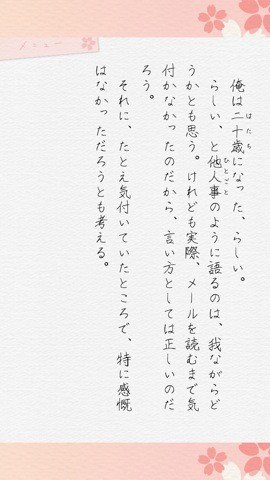 メニュー
俺は二十歳になった、らしい。
らしい、と他人事のように語るのは、我ながらど
うかとも思う。けれども実際、メールを読むまで気
付かなかったのだから、言い方としては正しいのだ
ろう。
それに、たとえ気付いていたところで、特に感慨
はなかっただろうとも考える。